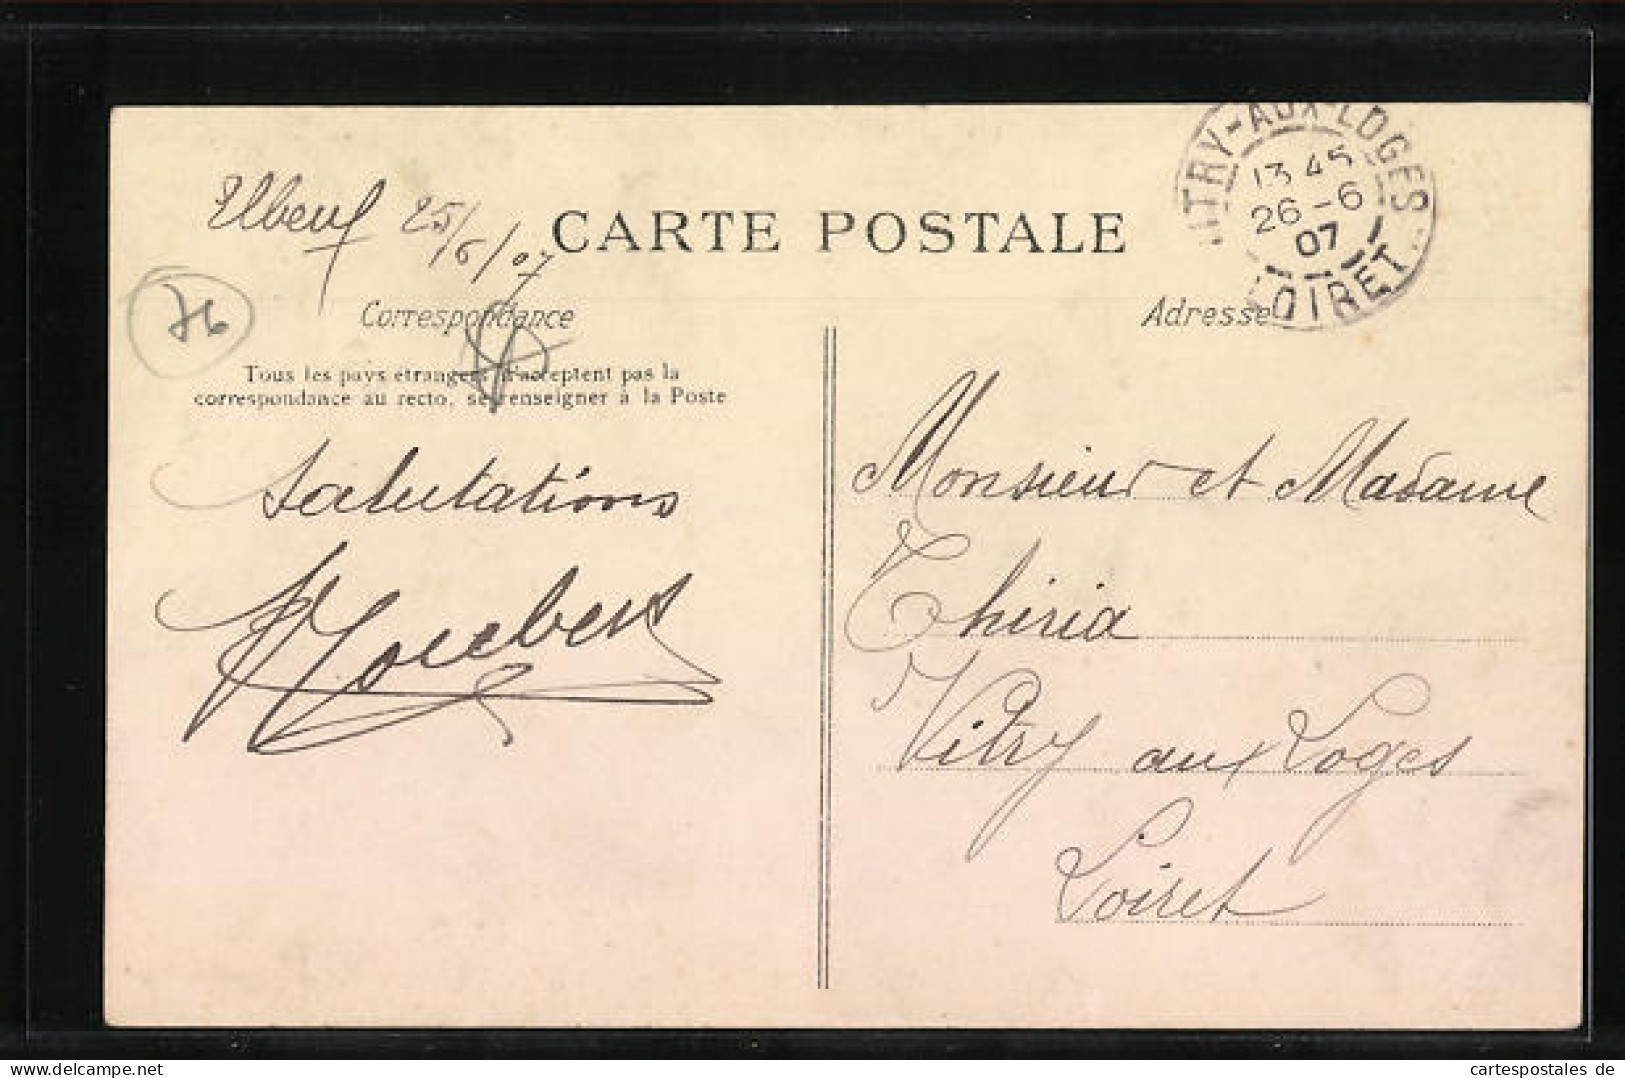 Elbeuf 25/6/07
CARTE POSTALE
VITRY-AUX-LOGES
13 45
26-6
07
LOIRET
76
Correspondance
Adresse
Tous les pays étrangers n'acceptent pas la
correspondance au recto, se renseigner à la Poste
Salutations
Monsieur et Madame
Thiria
Vitry aux Loges
Loiret
www.cartespostales.eu
cartespostales de